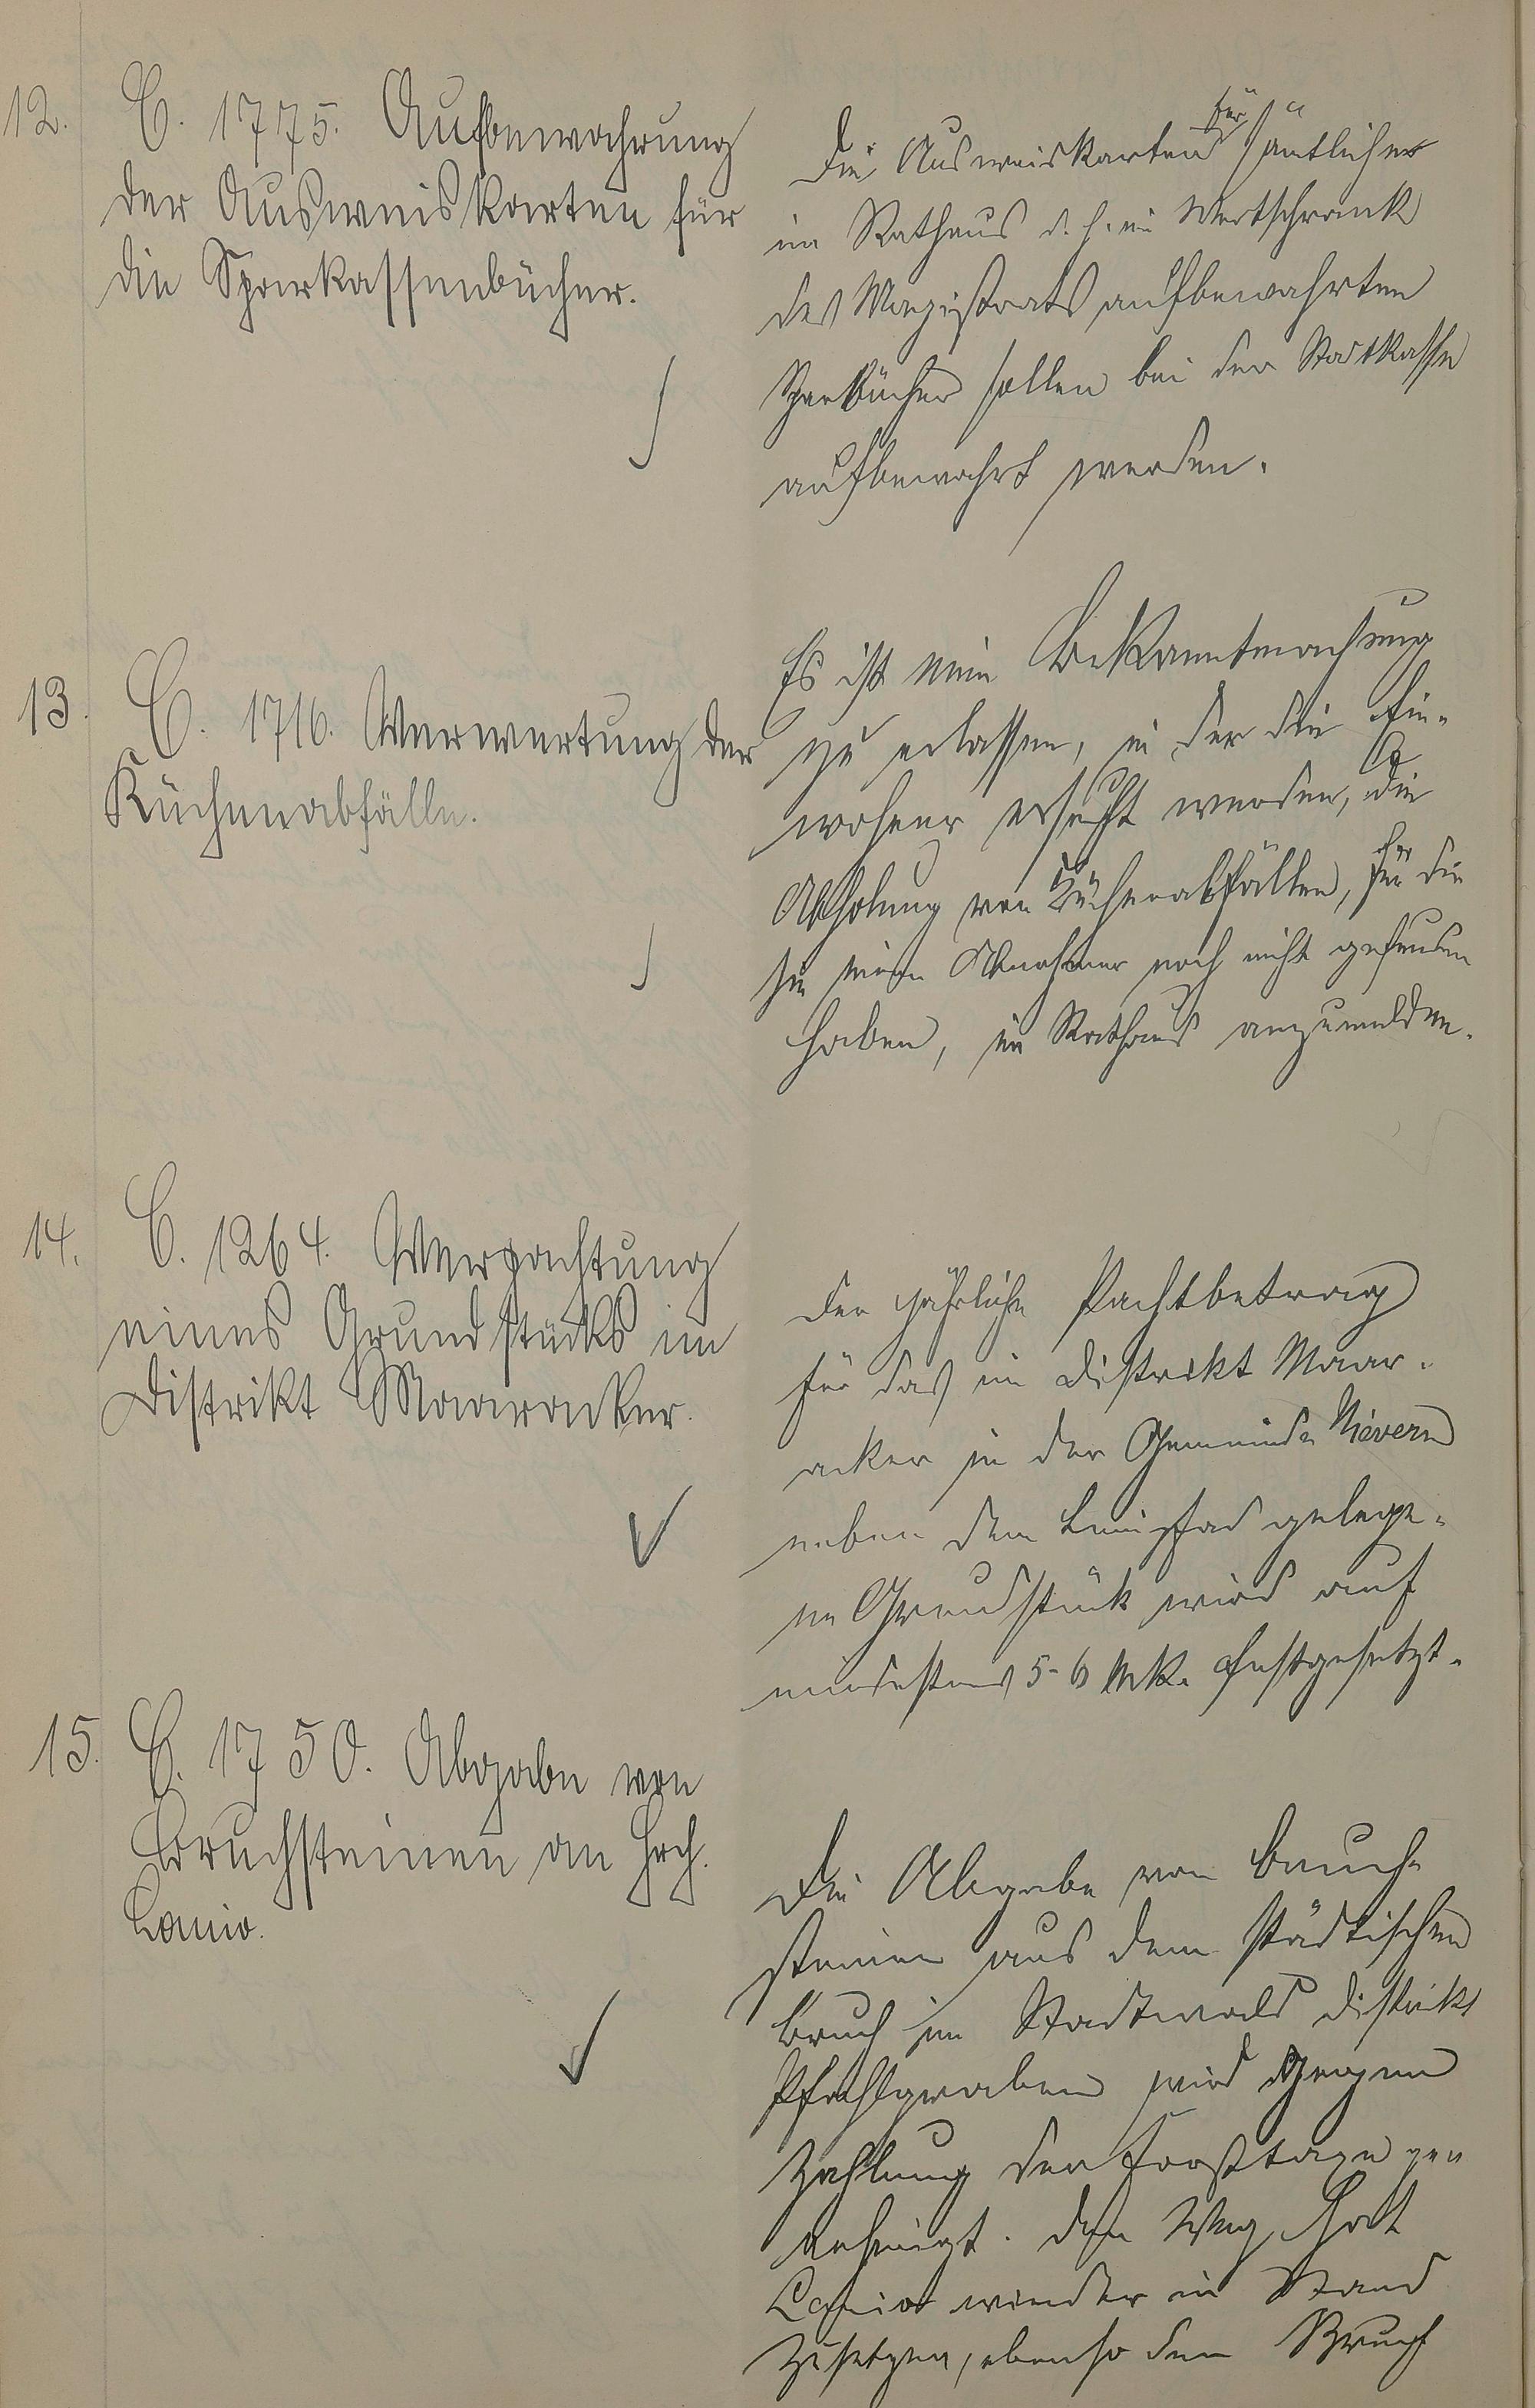 12. C. 1775. Aufbewahrung
der Ausweiskarten für
die Sparkassenbücher.
Die Ausweiskarten für sämtlicher
im Rathaus d. h. im Wertschrank
des Magistrats aufbewahrten
Sparbücher sollen bei der Stadtkasse
aufbewahrt werden.
13. C. 1716. Verwertung der
Küchenabfälle.
Es ist eine Bekanntmachung
zu erlassen, in der die Ein-
wohner ersucht werden, die
Abholung von Küchenabfällen, für die
sie einen Abnehmer noch nicht gefunden
haben, im Rathaus anzumelden.
14. C. 1264. Verpachtung
eines Grundstücks im
Distrikt Maaracker.
Der jährliche Pachtbetrag
für das im Distrikt Maar-
acker in der Gemeinde Nievern
neben dem Leinpfad gelege-
ne Grundstück wird auf
mindestens 5-6 Mk. festgesetzt.
15. C. 1750. Abgabe von
Bruchsteinen an Hch.
Lanio.
Die Abgabe von Bruch-
steinen aus dem städtischen
Bruch im Stadtwald Distrikt
Pfahlgraben wird gegen
Zahlung der Forsttaxe ge-
nehmigt. Den Weg hat
Lanio wieder in Stand
zusetzen, ebenso den Bruch